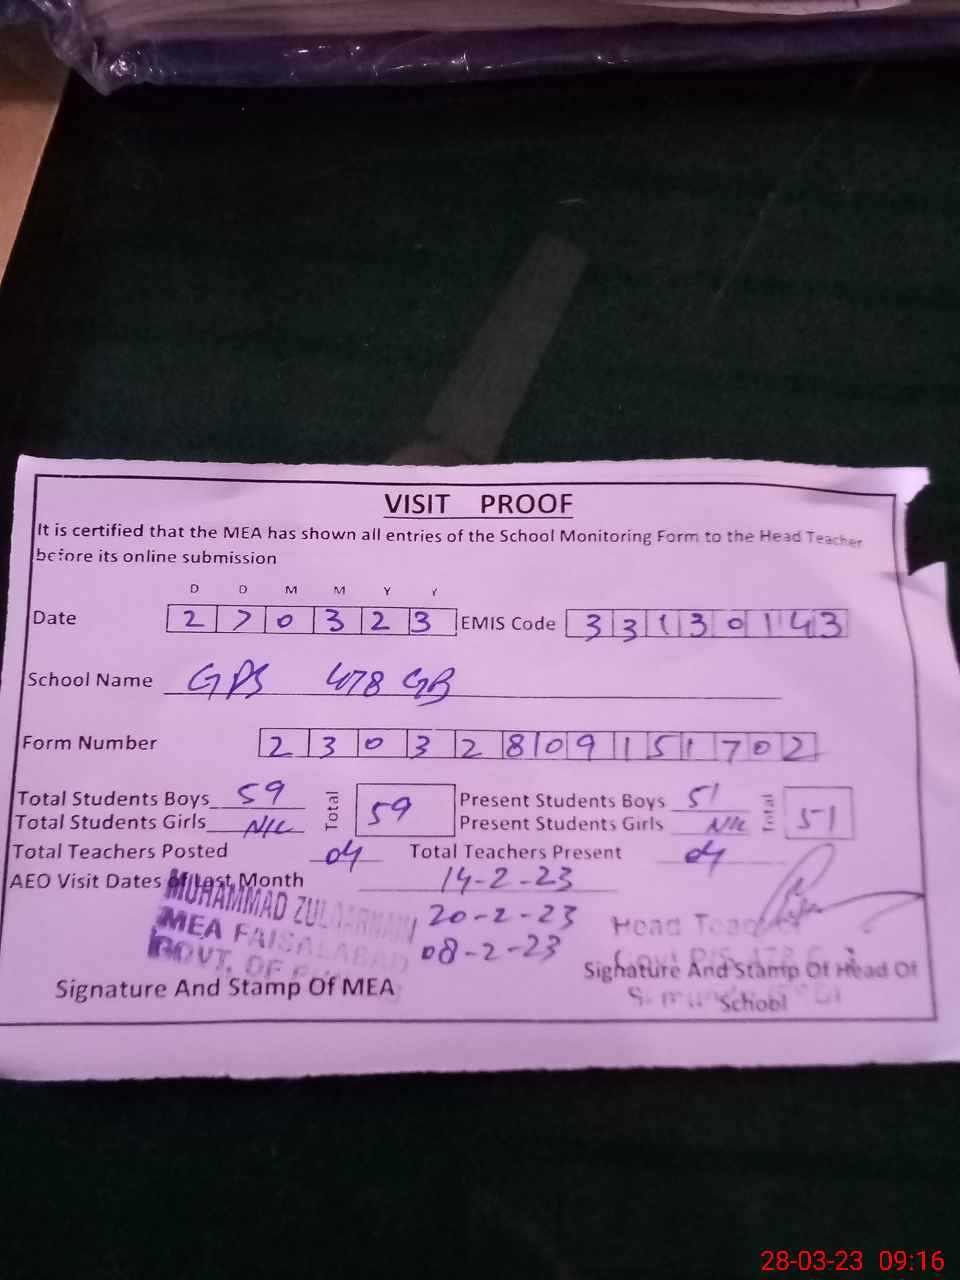 VISIT PROOF
It is certified that the MEA has shown all entries of the School Monitoring Form to the Head Teacher
before its online submission
D D M M Y Y
Date 2 7 0 3 2 3 EMIS Code 3 3 1 3 0 1 4 3
School Name GPS 478 GB
Form Number 2 3 0 3 2 8 0 9 1 5 1 7 0 2
Total Students Boys 59 Total 59 Present Students Boys 51 Total 51
Total Students Girls Nil Present Students Girls Nil
Total Teachers Posted 04 Total Teachers Present 04
AEO Visit Dates of Last Month 14-2-23
MUHAMMAD 20-2-23 Head Teacher
MEA FAISALABAD 08-2-23
GOVT. OF
Signature And Stamp Of MEA Signature And Stamp Of Head Of
School
28-03-23 09:16